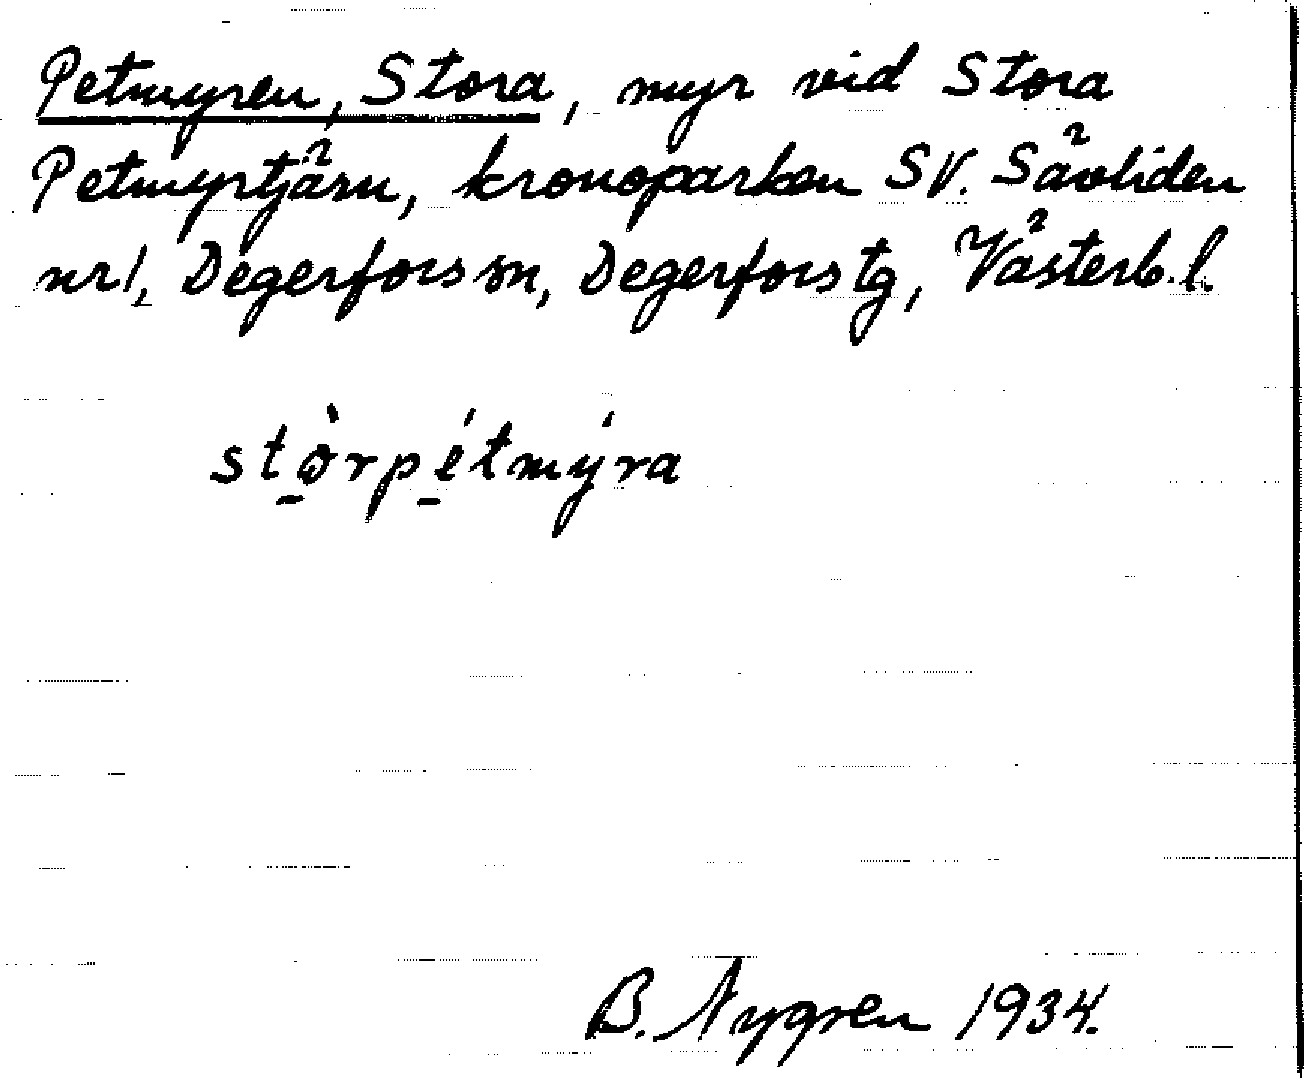 Petmyren, Stora, myr vid Stora
Petmyrtjärn, kronoparken SV. Sävliden
nr 1, Degerfors sn, Degerfors tg, Västerb. l.
stò̠rpé̠tmýra
B. Nygren 1934.